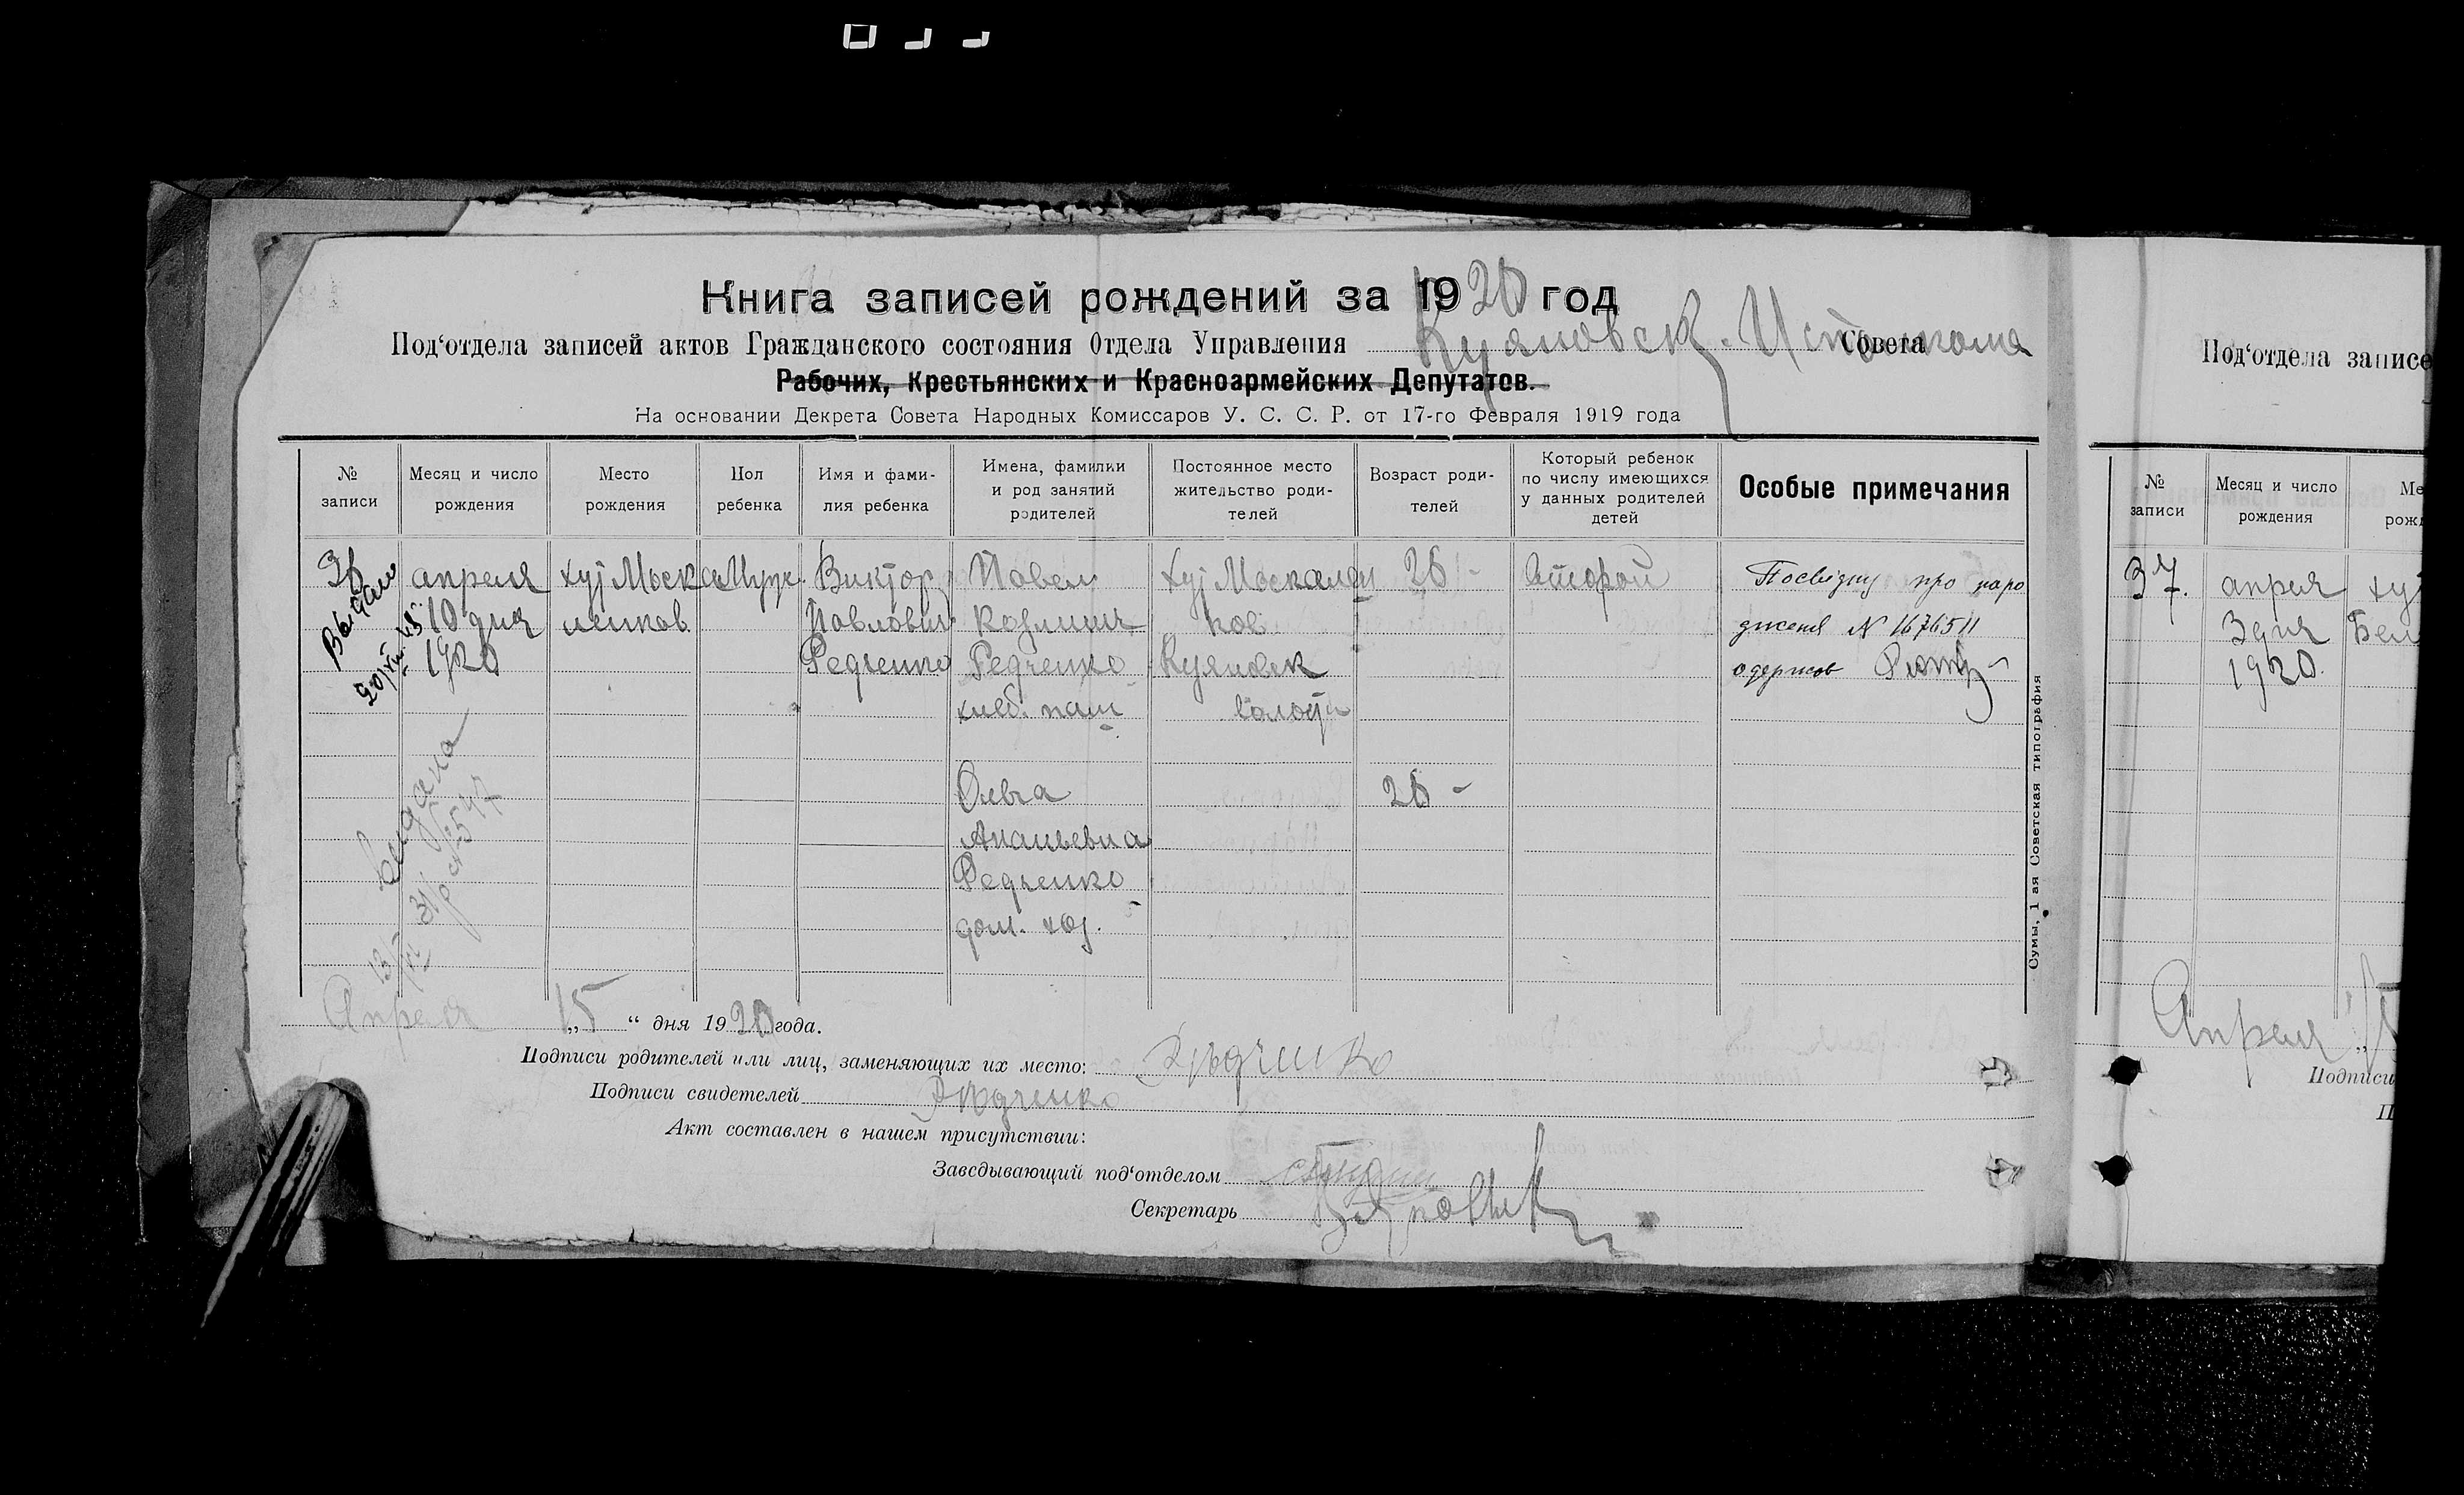 Книга записей рождений за 1920 год
Под'отдела записей актов Гражданского состояния Отдела Управления Куяновск. Исполкома Совета
Рабочих, Крестьянских и Красноармейских Депутатов.
На основании Декрета Совета Народных Комиссаров У. С. С. Р. от 17-го Февраля 1919 года
№ записи
Месяц и число рождения
Место рождения
Пол ребенка
Имя и фами- лия ребенка
Имена, фамилии и род занятий родителей
Постоянное место жительство роди- телей
Возраст роди- телей
Который ребенок по числу имеющихся у данных родителей детей
Особые примечания
36 апреля хут Моска Муж. Виктор Павел хут Москален 26 - Второй Посвідку про наро
10 дня ленков Павлович Козмич ков дженя N 1676511
1920 Редченко Редченко Куяновск одержав
хлеб. паш волости
Ольга 26 -
Ананьевна
Редченко
дом. хоз.
Выдано
выдана
Апреля „15“ дня 1920 года.
Подписи родителей или лиц, заменяющих их место: Редченко
Подписи свидетелей Редченко
Акт составлен в нашем присутствии:
Заведывающий под'отделом
Секретарь
Сумы, 1 ая Советская типография
Под'отдела записе
№ записи
Месяц и число рождения
Ме
рож
37. апреля ху
3 дня Бел
1920.
Апреля „15
Подписи
П